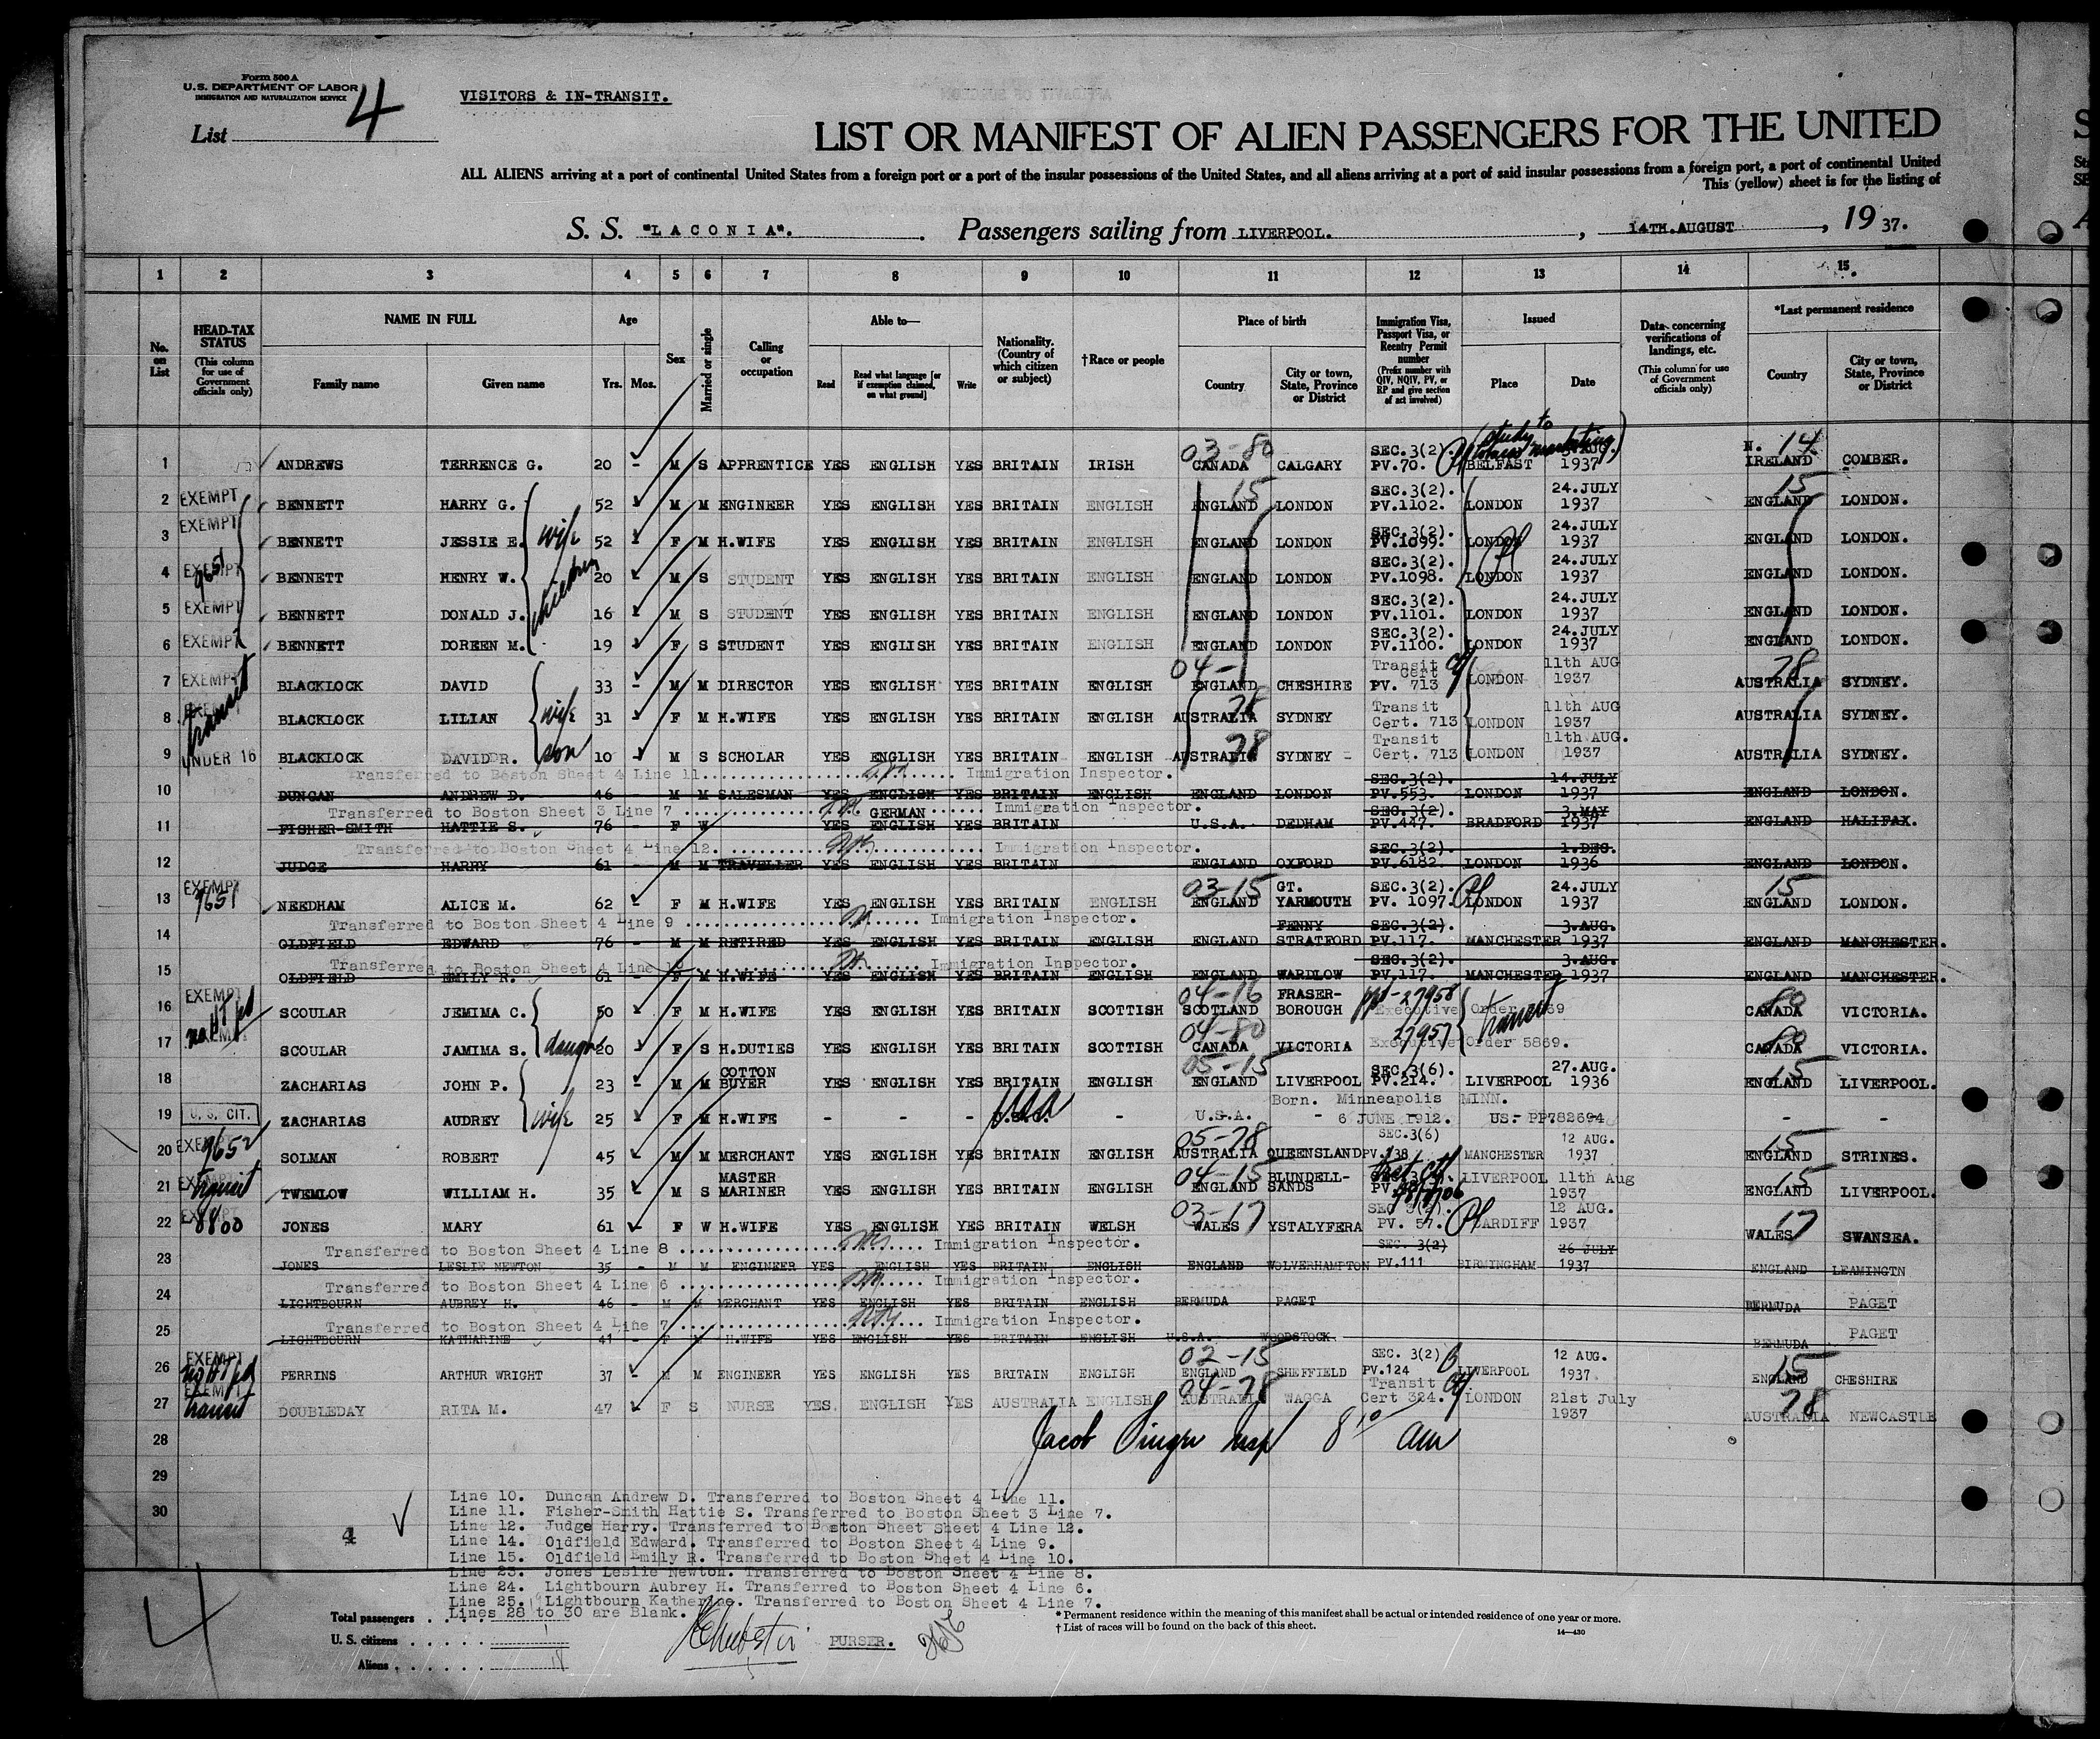 Form 500 A
U.S. DEPARTMENT OF LABOR
IMMIGRATION AND NATURALIZATION SERVICE
VISITORS & IN-TRANSIT.
List 4
LIST OR MANIFEST OF ALIEN PASSENGERS FOR THE UNITED
ALL ALIENS arriving at a port of continental United States from a foreign port or a port of the insular possessions of the United States, and all aliens arriving at a port of said insular possessions from a foreign port, a port of continental United
This (yellow) sheet is for the listing of
S. S. "LACONIA". Passengers sailing from LIVERPOOL. , 14TH.AUGUST , 19 37.
1 2 3 4 5 6 7 8 9 10 11 12 13 14 15
No. on List
HEAD-TAX STATUS (This column for use of Government officials only)
NAME IN FULL
Family name Given name
Age
Yrs. Mos.
Sex
Married or single
Calling or occupation
Able to—
Read Read what language [or if exemption claimed, on what ground] Write
Nationality. (Country of which citizen or subject)
†Race or people
Place of birth
Country City or town, State, Province or District
Immigration Visa, Passport Visa, or Reentry Permit number (Prefix number with QIV, NQIV, PV, or RP and give section of act involved)
Issued
Place Date
Data concerning verifications of landings, etc. (This column for use of Government officials only)
*Last permanent residence
Country City or town, State, Province or District
1 ANDREWS TERRENCE G. 20 - M S APPRENTICE YES ENGLISH YES BRITAIN IRISH 03-80 CANADA CALGARY SEC.3(2). PV.70. BELFAST AUG. 1937 N. IRELAND 14 COMBER.
2 EXEMPT BENNETT HARRY G. 52 - M M ENGINEER YES ENGLISH YES BRITAIN ENGLISH 15 ENGLAND LONDON SEC.3(2). PV.1102. LONDON 24.JULY 1937 15 ENGLAND LONDON.
3 EXEMPT BENNETT JESSIE E. wife 52 - F M H.WIFE YES ENGLISH YES BRITAIN ENGLISH ENGLAND LONDON SEC.3(2). PV.1099. LONDON 24.JULY 1937 ENGLAND LONDON.
4 EXEMPT 9651 BENNETT HENRY W. children 20 - M S STUDENT YES ENGLISH YES BRITAIN ENGLISH ENGLAND LONDON SEC.3(2). PV.1098. LONDON 24.JULY 1937 ENGLAND LONDON.
5 EXEMPT BENNETT DONALD J. 16 - M S STUDENT YES ENGLISH YES BRITAIN ENGLISH ENGLAND LONDON SEC.3(2). PV.1101. LONDON 24.JULY 1937 ENGLAND LONDON.
6 EXEMPT BENNETT DOREEN M. 19 - F S STUDENT YES ENGLISH YES BRITAIN ENGLISH ENGLAND LONDON SEC.3(2). PV.1100. LONDON 24.JULY 1937 ENGLAND LONDON.
7 EXEMPT BLACKLOCK DAVID 33 - M M DIRECTOR YES ENGLISH YES BRITAIN ENGLISH 04- ENGLAND CHESHIRE Transit Cert PV. 713 LONDON 11th AUG 1937 78 AUSTRALIA SYDNEY.
8 transit BLACKLOCK LILIAN wife 31 - F M H.WIFE YES ENGLISH YES BRITAIN ENGLISH 78 AUSTRALIA SYDNEY Transit Cert. 713 LONDON 11th AUG 1937 AUSTRALIA SYDNEY.
9 UNDER 16 BLACKLOCK DAVID R. son 10 - M S SCHOLAR YES ENGLISH YES BRITAIN ENGLISH 78 AUSTRALIA SYDNEY - Transit Cert. 713 LONDON 11th AUG. 1937 AUSTRALIA SYDNEY.
Transferred to Boston Sheet 4 Line 11. Immigration Inspector.
10 DUNCAN ANDREW D. 46 - M M SALESMAN YES ENGLISH YES BRITAIN ENGLISH ENGLAND LONDON SEC.3(2). PV.553. LONDON 14.JULY 1937 ENGLAND LONDON.
Transferred to Boston Sheet 3 Line 7 Immigration Inspector.
11 FISHER-SMITH HATTIE S. 76 - F W YES GERMAN ENGLISH YES BRITAIN U.S.A. DEDHAM SEC.3(2). PV.447. BRADFORD 3.MAY 1937 ENGLAND HALIFAX.
Transferred to Boston Sheet 4 Line 12. Immigration Inspector.
12 JUDGE HARRY 61 - M M TRAVELLER YES ENGLISH YES BRITAIN ENGLAND OXFORD SEC.3(2). PV.6182. LONDON 1.DEC. 1936 ENGLAND LONDON.
13 EXEMPT 9651 NEEDHAM ALICE M. 62 - F M H.WIFE YES ENGLISH YES BRITAIN ENGLISH 03-15 ENGLAND GT. YARMOUTH SEC.3(2). PV. 1097. LONDON 24.JULY 1937 15 ENGLAND LONDON.
Transferred to Boston Sheet 4 Line 9 Immigration Inspector.
14 OLDFIELD EDWARD 76 - M M RETIRED YES ENGLISH YES BRITAIN ENGLISH ENGLAND FENNY STRATFORD SEC.3(2). PV.117. MANCHESTER 3.AUG. 1937 ENGLAND MANCHESTER.
Transferred to Boston Sheet 4 Line 10 Immigration Inspector.
15 OLDFIELD EMILY R. 61 - F M H.WIFE YES ENGLISH YES BRITAIN ENGLISH ENGLAND WARDLOW SEC.3(2). PV.117. MANCHESTER 3.AUG. 1937 ENGLAND MANCHESTER.
16 EXEMPT no HT pd SCOULAR JEMIMA C. 50 - F M H.WIFE YES ENGLISH YES BRITAIN SCOTTISH 04-16 SCOTLAND FRASER-BOROUGH ppt-27958 Executive Order 5869 transit 80 CANADA VICTORIA.
17 SCOULAR JAMIMA S. daugr 20 - F S H.DUTIES YES ENGLISH YES BRITAIN SCOTTISH 04-80 CANADA VICTORIA 27957 Executive Order 5869. 80 CANADA VICTORIA.
18 ZACHARIAS JOHN P. 23 - M M COTTON BUYER YES ENGLISH YES BRITAIN ENGLISH 05-15 ENGLAND LIVERPOOL SEC.3(6). PV.214. LIVERPOOL 27.AUG. 1936 15 ENGLAND LIVERPOOL.
19 U.S. CIT. ZACHARIAS AUDREY wife 25 - F M H.WIFE - - - U.S.A. - U.S.A. - Born. Minneapolis MINN. 6 JUNE 1912. US.- PP.782694 - -
20 EXEMPT 9652 SOLMAN ROBERT 45 - M M MERCHANT YES ENGLISH YES BRITAIN ENGLISH 05-78 AUSTRALIA QUEENSLAND SEC.3(6) PV.138 MANCHESTER 12 AUG. 1937 15 ENGLAND STRINES.
21 EXEMPT transit TWEMLOW WILLIAM H. 35 - M S MASTER MARINER YES ENGLISH YES BRITAIN ENGLISH 04-15 ENGLAND BLUNDELL-SANDS PV. LIVERPOOL 11th Aug 1937 15 ENGLAND LIVERPOOL.
22 EXEMPT 8800 JONES MARY 61 - F W H.WIFE YES ENGLISH YES BRITAIN WELSH 03-17 WALES YSTALYFERA SEC 3(2). PV. 57. CARDIFF 12 AUG. 1937 17 WALES SWANSEA.
Transferred to Boston Sheet 4 Line 8 Immigration Inspector.
23 JONES LESLIE NEWTON 35 - M M ENGINEER YES ENGLISH YES BRITAIN ENGLISH ENGLAND WOLVERHAMPTON SEC. 3(2) PV.111 BIRMINGHAM 26 JULY 1937 ENGLAND LEAMINGTN
Transferred to Boston Sheet 4 Line 6 Immigration Inspector.
24 LIGHTBOURN AUBREY H. 46 - M M MERCHANT YES ENGLISH YES BRITAIN ENGLISH BERMUDA PAGET BERMUDA PAGET
Transferred to Boston Sheet 4 Line 7 Immigration Inspector.
25 LIGHTBOURN KATHARINE 41 - F M H.WIFE YES ENGLISH YES BRITAIN ENGLISH U.S.A. WOODSTOCK BERMUDA PAGET
26 EXEMPT no HT pd PERRINS ARTHUR WRIGHT 37 - M M ENGINEER YES ENGLISH YES BRITAIN ENGLISH 02-15 ENGLAND SHEFFIELD SEC. 3(2) PV.124 LIVERPOOL 12 AUG. 1937 15 ENGLAND CHESHIRE
27 EXEMPT transit DOUBLEDAY RITA M. 47 F S NURSE YES. ENGLISH YES AUSTRALIA ENGLISH 04-78 AUSTRALIA WAGGA Transit Cert 324. LONDON 21st July 1937 78 AUSTRALIA NEWCASTLE
28 Jacob Insp 8 10 am
29
30
Line 10. Duncan Andrew D. Transferred to Boston Sheet 4 Line 11.
Line 11. Fisher-Smith Hattie S. Transferred to Boston Sheet 3 Line 7.
Line 12. Judge Harry. Transferred to Boston Sheet Sheet 4 Line 12.
Line 14. Oldfield Edward. Transferred to Boston Sheet 4 Line 9.
4
Line 15. Oldfield Emily R. Transferred to Boston Sheet 4 Line 10.
Line 23. Jones Leslie Newton. Transferred to Boston Sheet 4 Line 8.
Line 24. Lightbourn Aubrey H. Transferred to Boston Sheet 4 Line 6.
Line 25. Lightbourn Katherine. Transferred to Boston Sheet 4 Line 7.
Lines 28 to 30 are Blank.
4
Total passengers
U. S. citizens 1
Aliens 18
PURSER.
* Permanent residence within the meaning of this manifest shall be actual or intended residence of one year or more.
† List of races will be found on the back of this sheet.
14—430